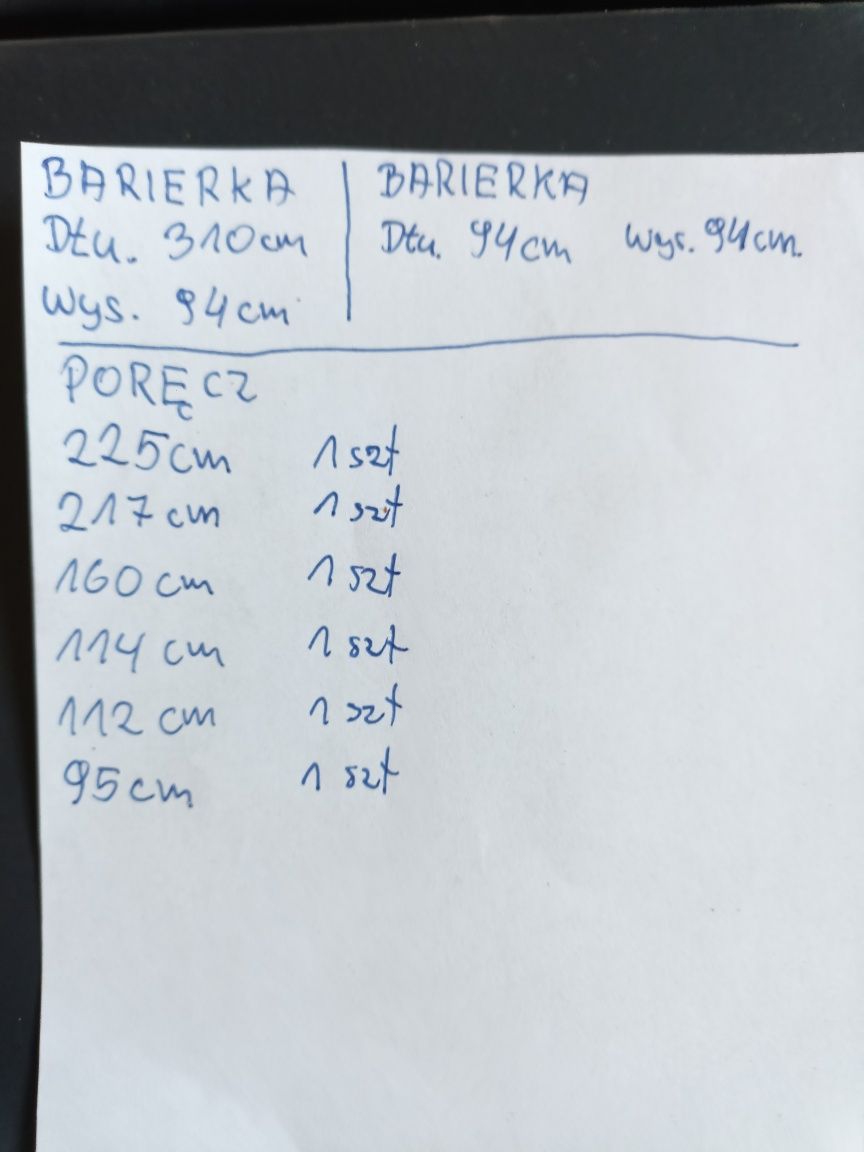 BARIERKA
Dłu. 310cm
Wys. 94cm
BARIERKA
Dłu. 94cm Wys. 94cm.
PORĘCZ
225cm 1 szt
217cm 1 szt
160cm 1 szt
114cm 1 szt
112cm 1 szt
95cm 1 szt